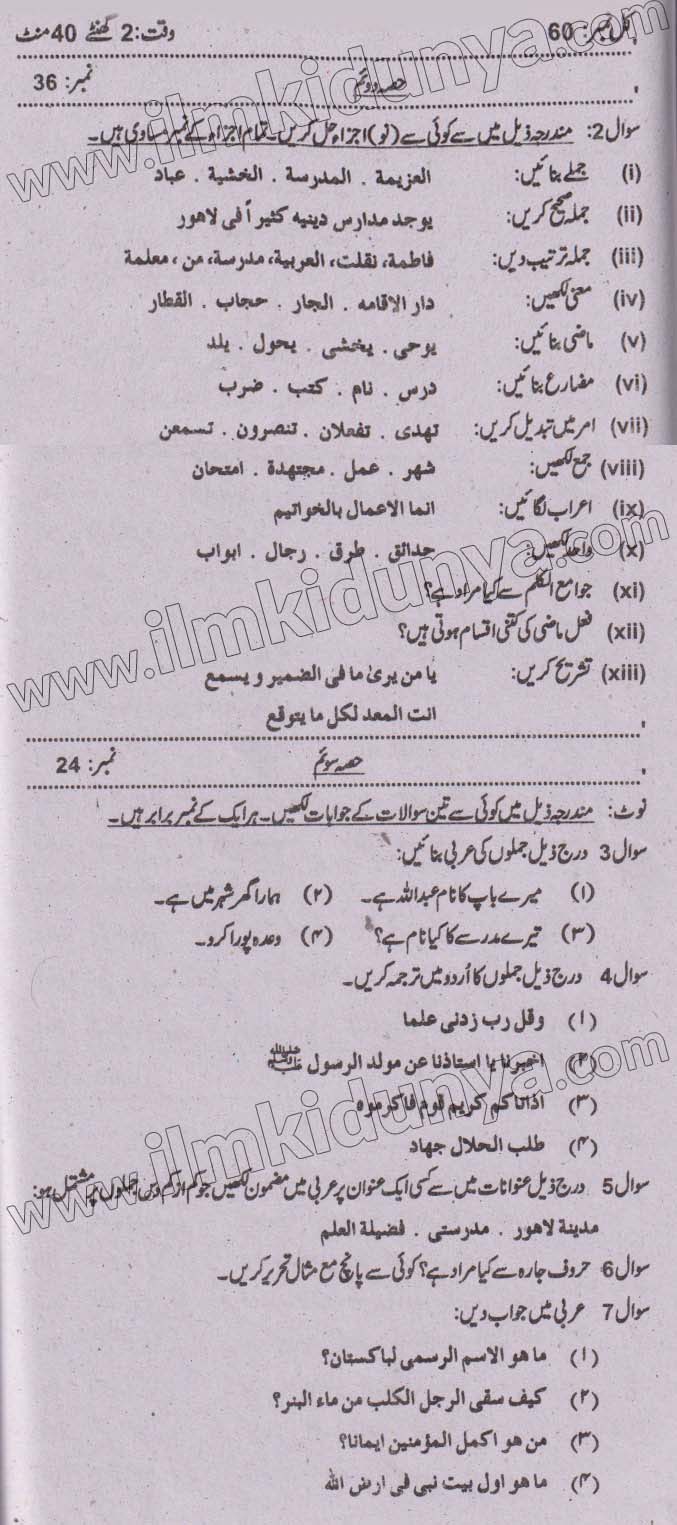 کل نمبر: 60 وقت: 2 گھنٹے 40 منٹ
حصہ دوئم نمبر: 36
سوال 2: مندرجہ ذیل میں سے کوئی سے (نو) اجزاء حل کریں۔ تمام اجزاء کے نمبر مساوی ہیں۔
(i) جملے بنائیں: العزیمة . المدرسة . الخشیة . عباد
(ii) جملہ صحیح کریں: یوجد مدارس دینیه کثیراً فی لاهور
(iii) جملہ ترتیب دیں: فاطمة، نقلت، العربیة، مدرسة، من ، معلمة
(iv) معنی لکھیں: دار الاقامه . الجار . حجاب . القطار
(v) ماضی بنائیں: یوحی . یخشی . یحول . یلد
(vi) مضارع بنائیں: درس . نام . کتب . ضرب
(vii) امر میں تبدیل کریں: تهدی . تفعلان . تنصرون . تسمعن
(viii) جمع لکھیں: شهر . عمل . مجتهدة . امتحان
(ix) اعراب لگائیں: انما الاعمال بالخواتیم
(x) واحد لکھیں: حدائق . طرق . رجال . ابواب
(xi) جوامع الکلم سے کیا مراد ہے؟
(xii) فعل ماضی کی کتنی اقسام ہوتی ہیں؟
(xiii) تشریح کریں: یا من یریٰ ما فی الضمیر و یسمع
انت المعد لکل ما یتوقع
حصہ سوئم نمبر: 24
نوٹ: مندرجہ ذیل میں کوئی سے تین سوالات کے جوابات لکھیں۔ ہر ایک کے نمبر برابر ہیں۔
سوال 3 درج ذیل جملوں کی عربی بنائیں:
(۱) میرے باپ کا نام عبداللہ ہے۔ (۲) ہمارا گھر شہر میں ہے۔
(۳) تیرے مدرسے کا کیا نام ہے؟ (۴) وعدہ پورا کرو۔
سوال 4 درج ذیل جملوں کا اُردو میں ترجمہ کریں۔
(۱) وقل رب زدنی علما
(۲) اخبرنا یا استاذنا عن مولد الرسول ﷺ
(۳) اذاتاکم کریم قوم فاکرموه
(۴) طلب الحلال جهاد
سوال 5 درج ذیل عنوانات میں سے کسی ایک عنوان پر عربی میں مضمون لکھیں جو کم از کم دس جملوں پر مشتمل ہو:
مدینة لاهور . مدرستی . فضیلة العلم
سوال 6 حروف جارہ سے کیا مراد ہے؟ کوئی سے پانچ مع مثال تحریر کریں۔
سوال 7 عربی میں جواب دیں:
(۱) ما هو الاسم الرسمی لباکستان؟
(۲) کیف سقی الرجل الکلب من ماء البئر؟
(۳) من هو اکمل المؤمنین ایمانا؟
(۴) ما هو اول بیت نبی فی ارض الله
www.ilmkidunya.com
www.ilmkidunya.com
www.ilmkidunya.com